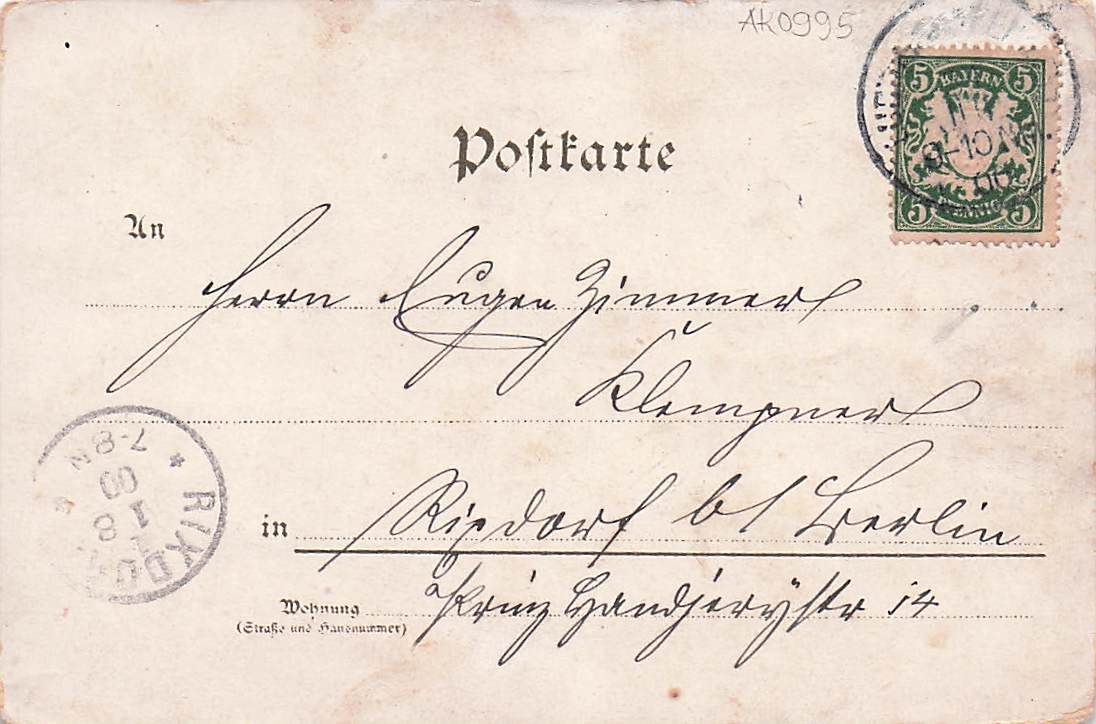 AK0995
5 BAYERN 5
9-10 N
00
5 PFENNIG 5
Postkarte
An
Herrn Eugen Zimmer
Klempner
in Rixdorf b/ Berlin
Wohnung Prinz Handjerystr 14
(Straße und Hausnummer)
RIXDORF
1 8
00
7-8 N